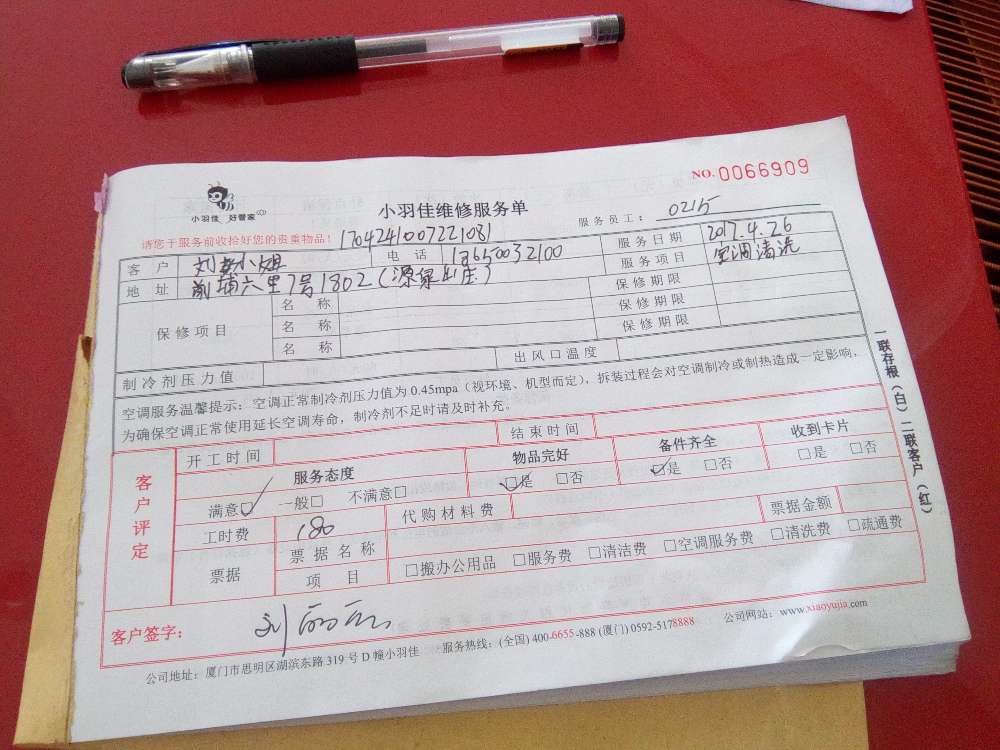 NO.0066909
小羽佳 好管家
小羽佳维修服务单
服务员工： 0215
请您于服务前收拾好您的贵重物品！ 1704241007221081
客户 刘 小姐 电话 18650032100 服务日期 2017.4.26
地址 前埔六里7号1802（源绿山庄） 服务项目 空调清洗
保修项目 名称 保修期限
名称 保修期限
名称 保修期限
制冷剂压力值 出风口温度
空调服务温馨提示：空调正常制冷剂压力值为0.45mpa（视环境、机型而定），拆装过程会对空调制冷或制热造成一定影响，
为确保空调正常使用延长空调寿命，制冷剂不足时请及时补充。
客户评定
开工时间 结束时间
服务态度 物品完好 备件齐全 收到卡片
满意□ 一般□ 不满意□ □是 □否 □是 □否 □是 □否
工时费 180 代购材料费 票据金额
票据 票据名称
项目 □搬办公用品 □服务费 □清洁费 □空调服务费 □清洗费 □疏通费
客户签字： 刘
公司地址：厦门市思明区湖滨东路319号D幢小羽佳 服务热线：(全国) 400-6655-888 (厦门) 0592-5178888 公司网站：www.xiaoyujia.com
一联存根（白）二联客户（红）